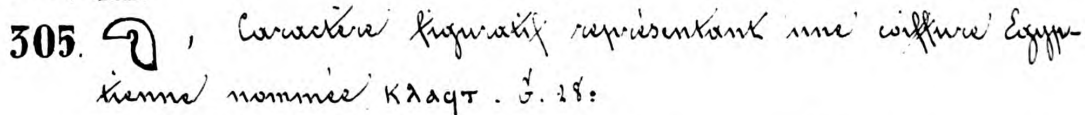 305. , Caractère figuratif représentant une coiffure Égyp-
tienne nommée ⲕⲗⲁϥⲧ. 28: